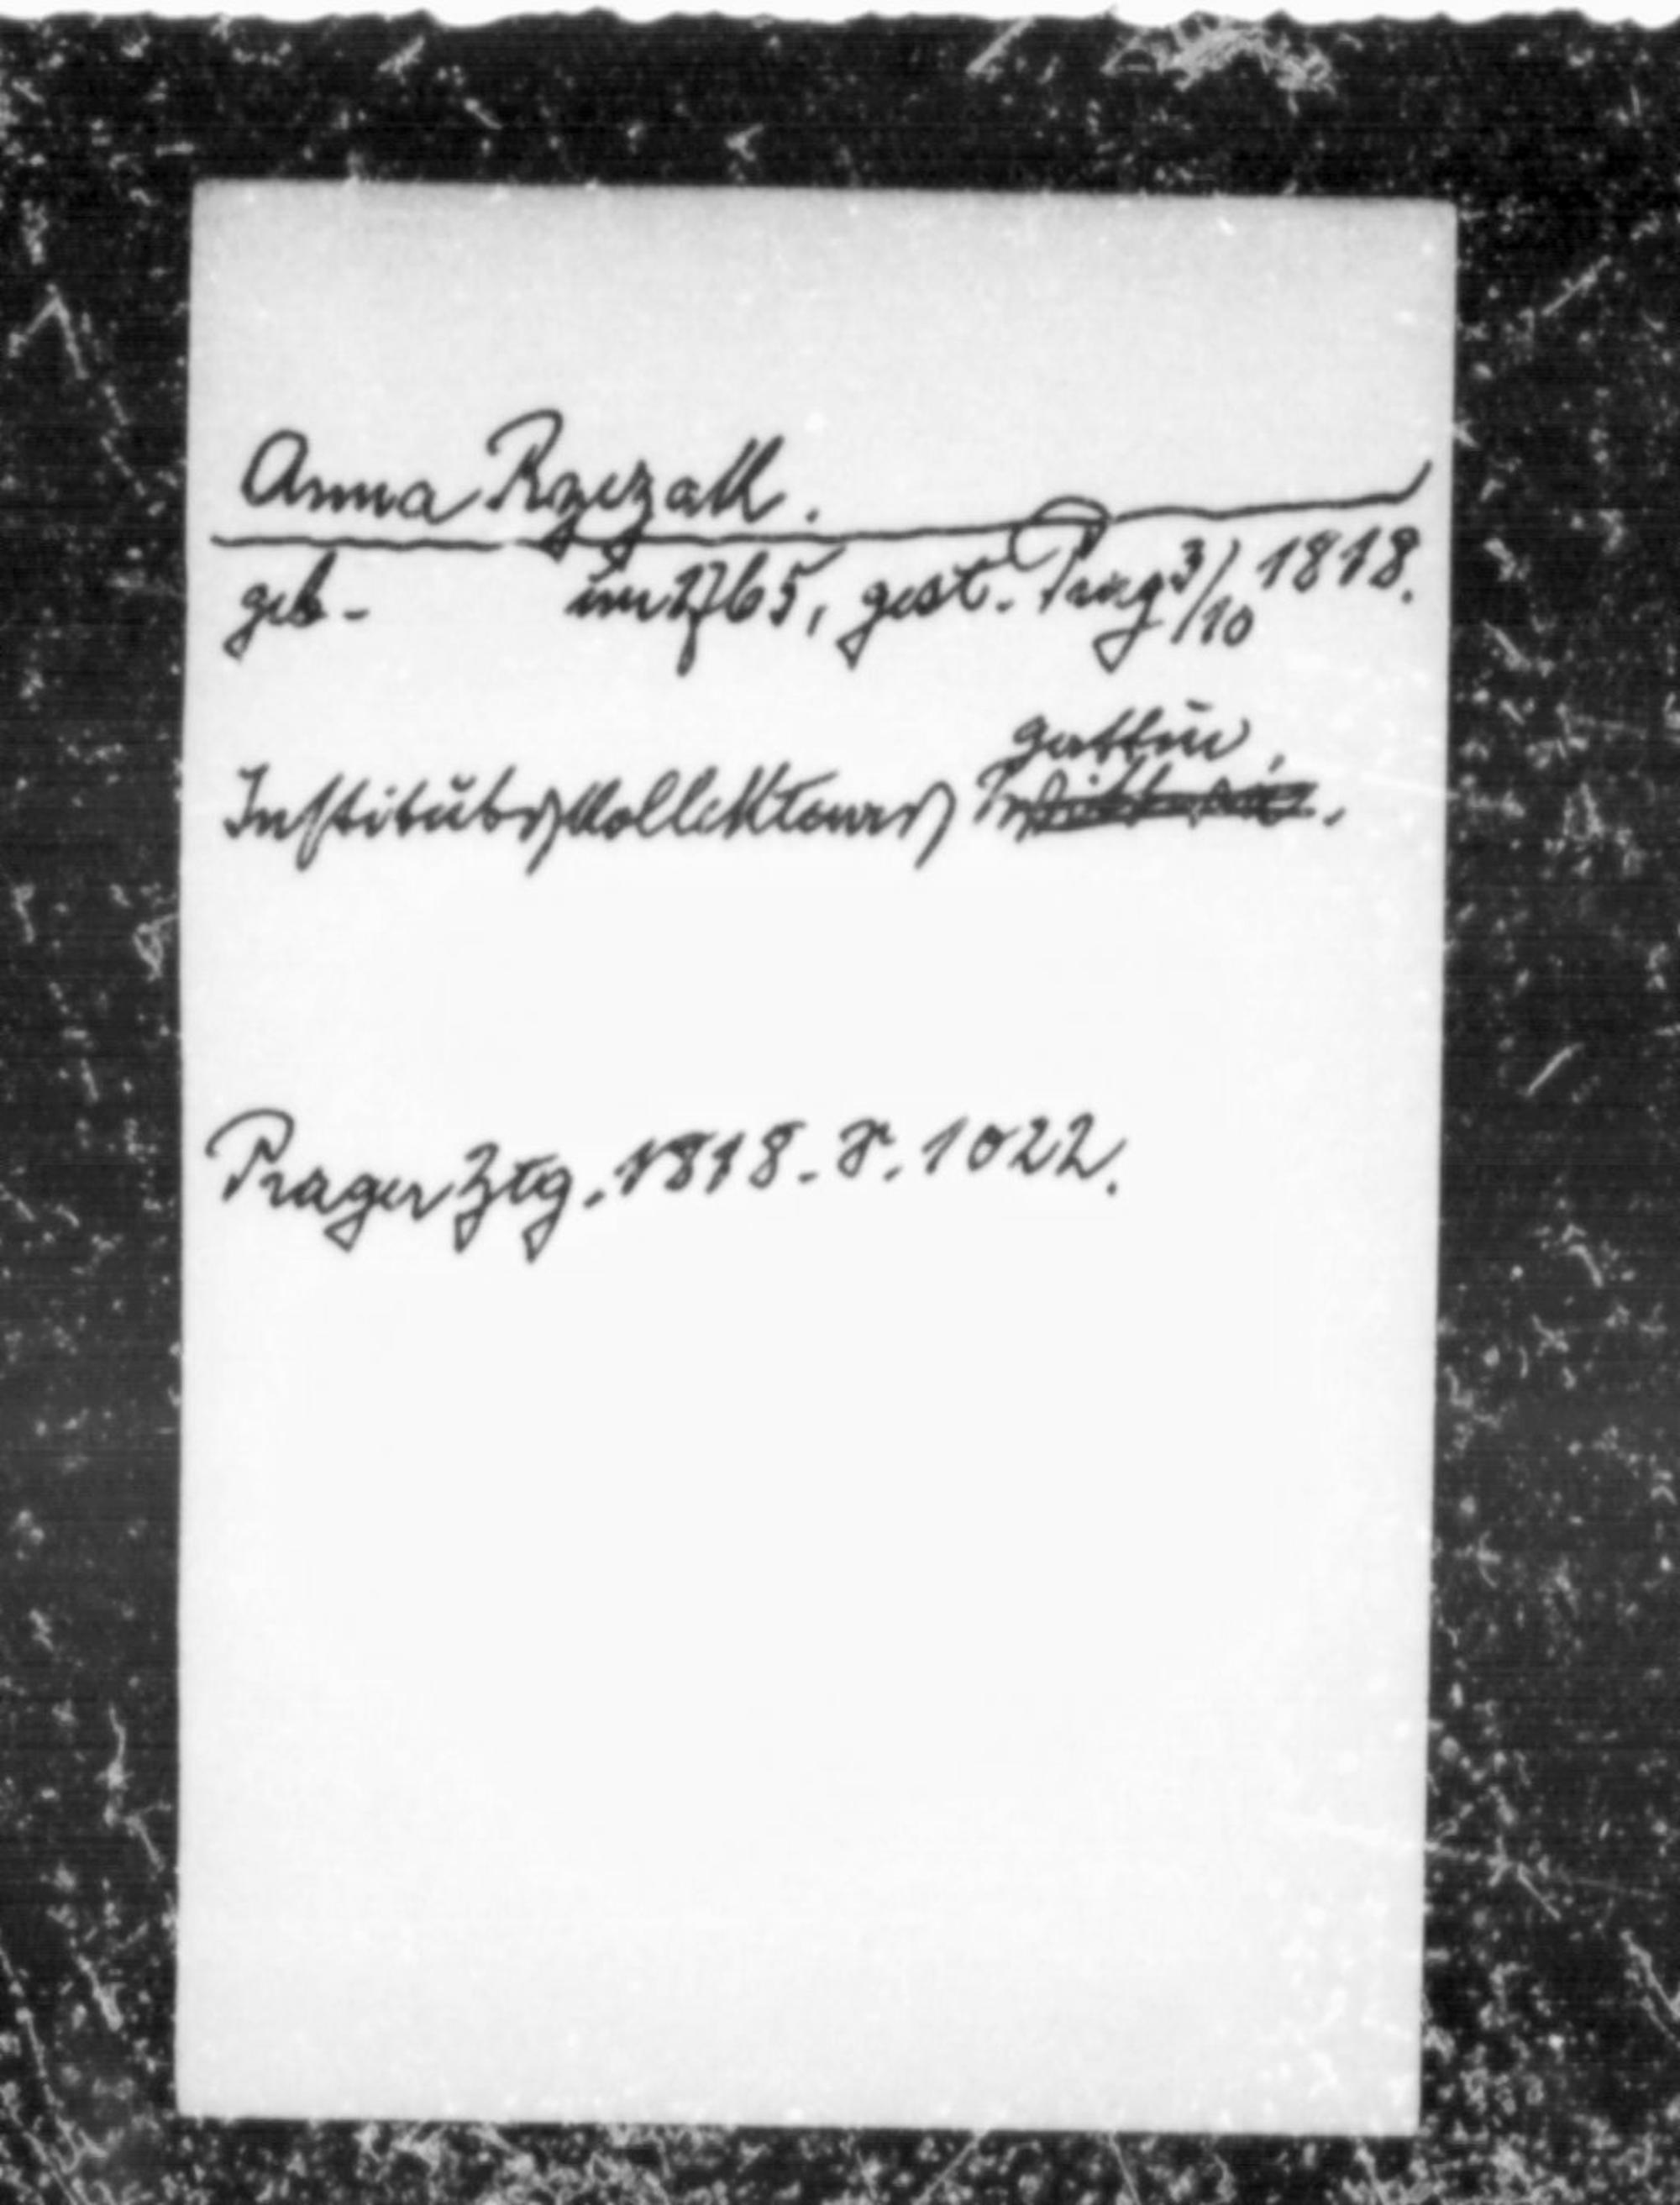 Anna Rzezak.
geb. um 1765, gest. Prag 3/10 1818.
gattin,
Institutskollekteurs
Prager Ztg. 1818. S. 1022.